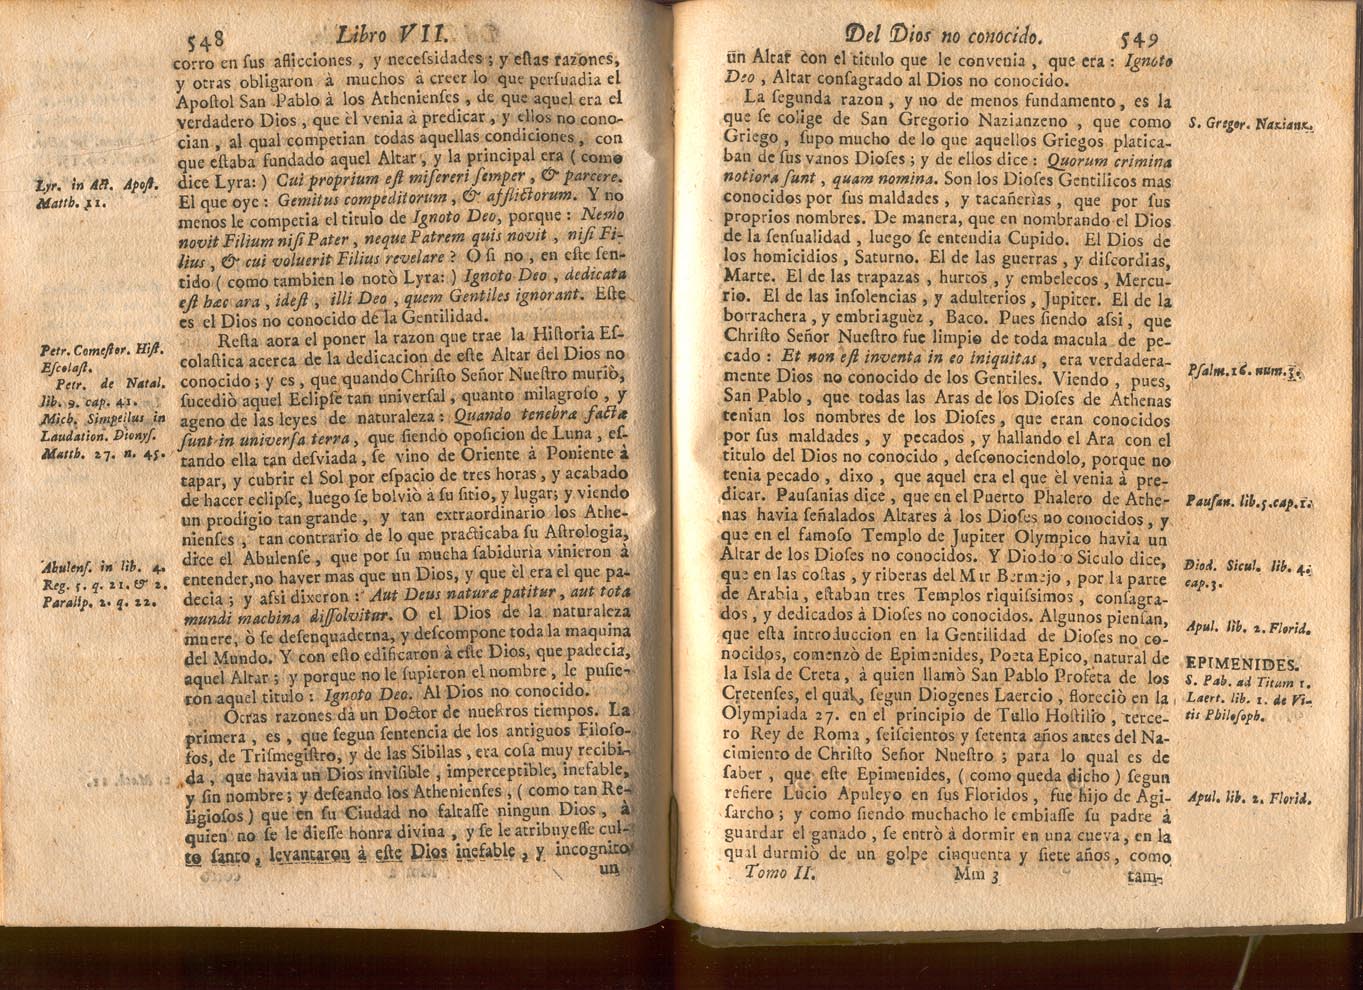 548 Libro VII.
corro en sus aflicciones , y necessidades ; y estas razones,
y otras obligaron à muchos à creer lo que persuadia el
Apostol San Pablo à los Athenienses , de que aquel era el
verdadero Dios , que èl venia à predicar , y ellos no cono-
cian , al qual competian todas aquellas condiciones , con
que estaba fundado aquel Altar , y la principal era ( como
dice Lyra: ) Cui proprium est misereri semper , & parcere.
El que oye : Gemitus compeditorum , & afflictorum. Y no
menos le competia el titulo de Ignoto Deo, porque : Nemo
novit Filium nisi Pater , neque Patrem quis novit , nisi Fi-
lius , & cui voluerit Filius revelare ? O si no , en este sen-
tido ( como tambien lo notò Lyra: ) Ignoto Deo , dedicata
est hæc ara , idest , illi Deo , quem Gentiles ignorant. Este
es el Dios no conocido de la Gentilidad.
Resta aora el poner la razon que trae la Historia Es-
colastica acerca de la dedicacion de este Altar del Dios no
conocido ; y es , que quando Christo Señor Nuestro muriò,
sucediò aquel Eclipse tan universal , quanto milagroso , y
ageno de las leyes de naturaleza : Quando tenebræ factæ
sunt in universa terra , que siendo oposicion de Luna , es-
tando ella tan desviada , se vino de Oriente à Poniente à
tapar, y cubrir el Sol por espacio de tres horas , y acabado
de hacer eclipse, luego se bolviò à su sitio, y lugar; y viendo
un prodigio tan grande , y tan extraordinario los Athe-
nienses , tan contrario de lo que practicaba su Astrologia,
dice el Abulense , que por su mucha sabiduria vinieron à
entender, no haver mas que un Dios, y que èl era el que pa-
decia ; y assi dixeron : Aut Deus naturæ patitur, aut tota
mundi machina dissolvitur. O el Dios de la naturaleza
muere, ò se desenquaderna, y descompone toda la maquina
del Mundo. Y con esto edificaron à este Dios, que padecia,
aquel Altar ; y porque no le supieron el nombre, le pusie-
ron aquel titulo : Ignoto Deo. Al Dios no conocido.
Otras razones dà un Doctor de nuestros tiempos. La
primera , es , que segun sentencia de los antiguos Filoso-
fos, de Trismegistro, y de las Sibilas , era cosa muy recibi-
da , que havia un Dios invisible , imperceptible, inefable,
y sin nombre; y deseando los Athenienses , ( como tan Re-
ligiosos ) que en su Ciudad no faltasse ningun Dios , à
quien no se le diesse honra divina , y se le atribuyesse cul-
to santo, levantaron à este Dios inefable , y incognito
un
Lyr. in Act. Apost.
Matth. 11.
Petr. Comestor. Hist.
Escolast.
Petr. de Natal.
lib. 9. cap. 41.
Mich. Simpellus in
Laudation. Dionys.
Matth. 27. n. 45.
Abulens. in lib. 4.
Reg. 5. q. 21. & 2.
Paralip. 2. q. 22.
Del Dios no conocido. 549
un Altar con el titulo que le convenia , que era : Ignoto
Deo , Altar consagrado al Dios no conocido.
La segunda razon , y no de menos fundamento, es la
que se colige de San Gregorio Nazianzeno , que como
Griego , supo mucho de lo que aquellos Griegos platica-
ban de sus vanos Dioses ; y de ellos dice : Quorum crimina
notiora sunt , quam nomina. Son los Dioses Gentilicos mas
conocidos por sus maldades , y tacañerias , que por sus
proprios nombres. De manera, que en nombrando el Dios
de la sensualidad , luego se entendia Cupido. El Dios de
los homicidios , Saturno. El de las guerras , y discordias,
Marte. El de las trapazas , hurtos , y embelecos , Mercu-
rio. El de las insolencias , y adulterios , Jupiter. El de la
borrachera , y embriaguèz , Baco. Pues siendo assi , que
Christo Señor Nuestro fue limpio de toda macula de pe-
cado : Et non est inventa in eo iniquitas , era verdadera-
mente Dios no conocido de los Gentiles. Viendo , pues,
San Pablo , que todas las Aras de los Dioses de Athenas
tenian los nombres de los Dioses , que eran conocidos
por sus maldades , y pecados , y hallando el Ara con el
titulo del Dios no conocido , desconociendolo, porque no
tenia pecado , dixo , que aquel era el que èl venia à pre-
dicar. Pausanias dice , que en el Puerto Phalero de Athe-
nas havia señalados Altares à los Dioses no conocidos , y
que en el famoso Templo de Jupiter Olympico havia un
Altar de los Dioses no conocidos. Y Diodoro Siculo dice,
que en las costas , y riberas del Mar Bermejo , por la parte
de Arabia , estaban tres Templos riquissimos , consagra-
dos , y dedicados à Dioses no conocidos. Algunos piensan,
que esta introduccion en la Gentilidad de Dioses no co-
nocidos, comenzò de Epimenides, Poeta Epico, natural de
la Isla de Creta , à quien llamò San Pablo Profeta de los
Cretenses, el qual, segun Diogenes Laercio , floreciò en la
Olympiada 27. en el principio de Tullo Hostilio , terce-
ro Rey de Roma , seiscientos y setenta años antes del Na-
cimiento de Christo Señor Nuestro ; para lo qual es de
saber , que este Epimenides, ( como queda dicho ) segun
refiere Lucio Apuleyo en sus Floridos , fue hijo de Agi-
sarcho ; y como siendo muchacho le embiasse su padre à
guardar el ganado , se entrò à dormir en una cueva, en la
qual durmiò de un golpe cinquenta y siete años , como
Tomo II. Mm 3 tam-
S. Gregor. Nazianz.
Psalm. 16. num. 3.
Pausan. lib. 5. cap. 1.
Diod. Sicul. lib. 4.
cap. 3.
Apul. lib. 2. Florid.
EPIMENIDES.
S. Pab. ad Titum 1.
Laert. lib. 1. de Vi-
tis Philosoph.
Apul. lib. 2. Florid.